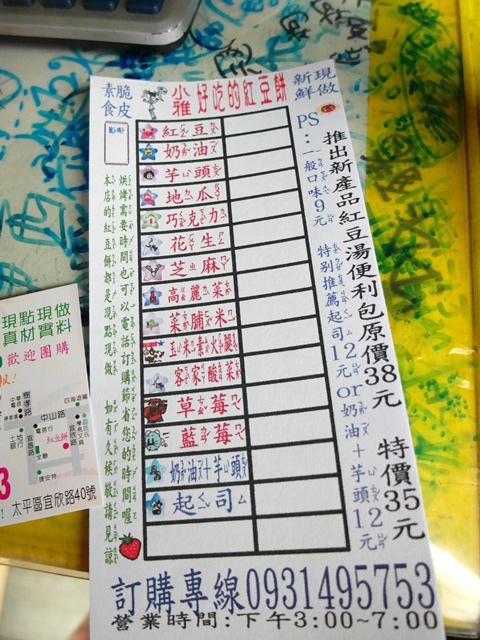 素食
脆皮
小雅 好吃的紅豆餅
新鮮
現做
紅豆
奶油
芋頭
地瓜
巧克力
花生
芝麻
高麗菜
菜脯米
玉米素火腿
客家酸菜
草莓
藍莓
奶油+芋頭
起司
PS:一般口味9元 特別推薦起司12元or奶油+芋頭12元
推出新產品紅豆湯便利包原價38元 特價35元
烘烤需要時間也可以電話訂購節省您的時間喔
本店的紅豆餅都是現點現做 如有久候敬請見諒
訂購專線0931495753
營業時間:下午3:00~7:00
現點現做
真材實料
歡迎團購
樹孝路
中山路
宜欣路
土地銀行
紅豆餅
捷安特
太平區宜欣路40號